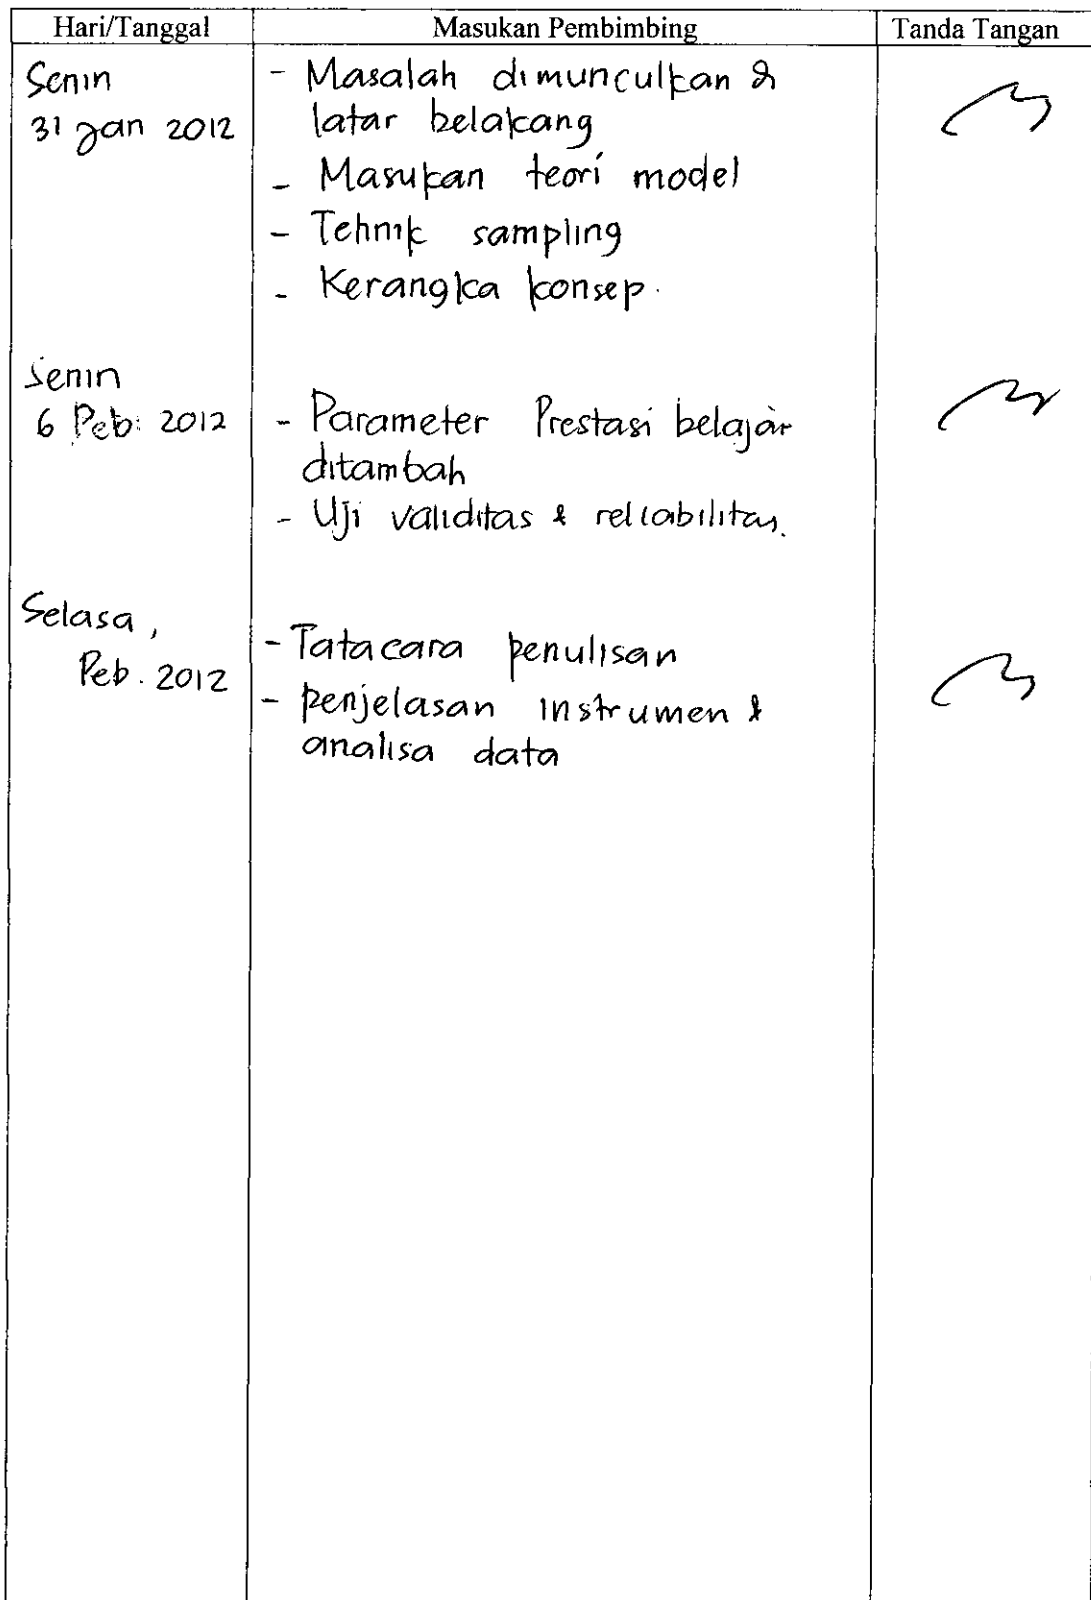 Hari/Tanggal Masukan Pembimbing Tanda Tangan
Senin
31 Jan 2012
- Masalah dimunculkan &
latar belakang
- Masukan teori model
- Tehnik sampling
- Kerangka konsep.
Senin
6 Peb. 2012
- Parameter Prestasi belajar
ditambah
- Uji validitas & reliabilitas.
Selasa,
Peb. 2012
- Tatacara penulisan
- penjelasan instrumen &
analisa data